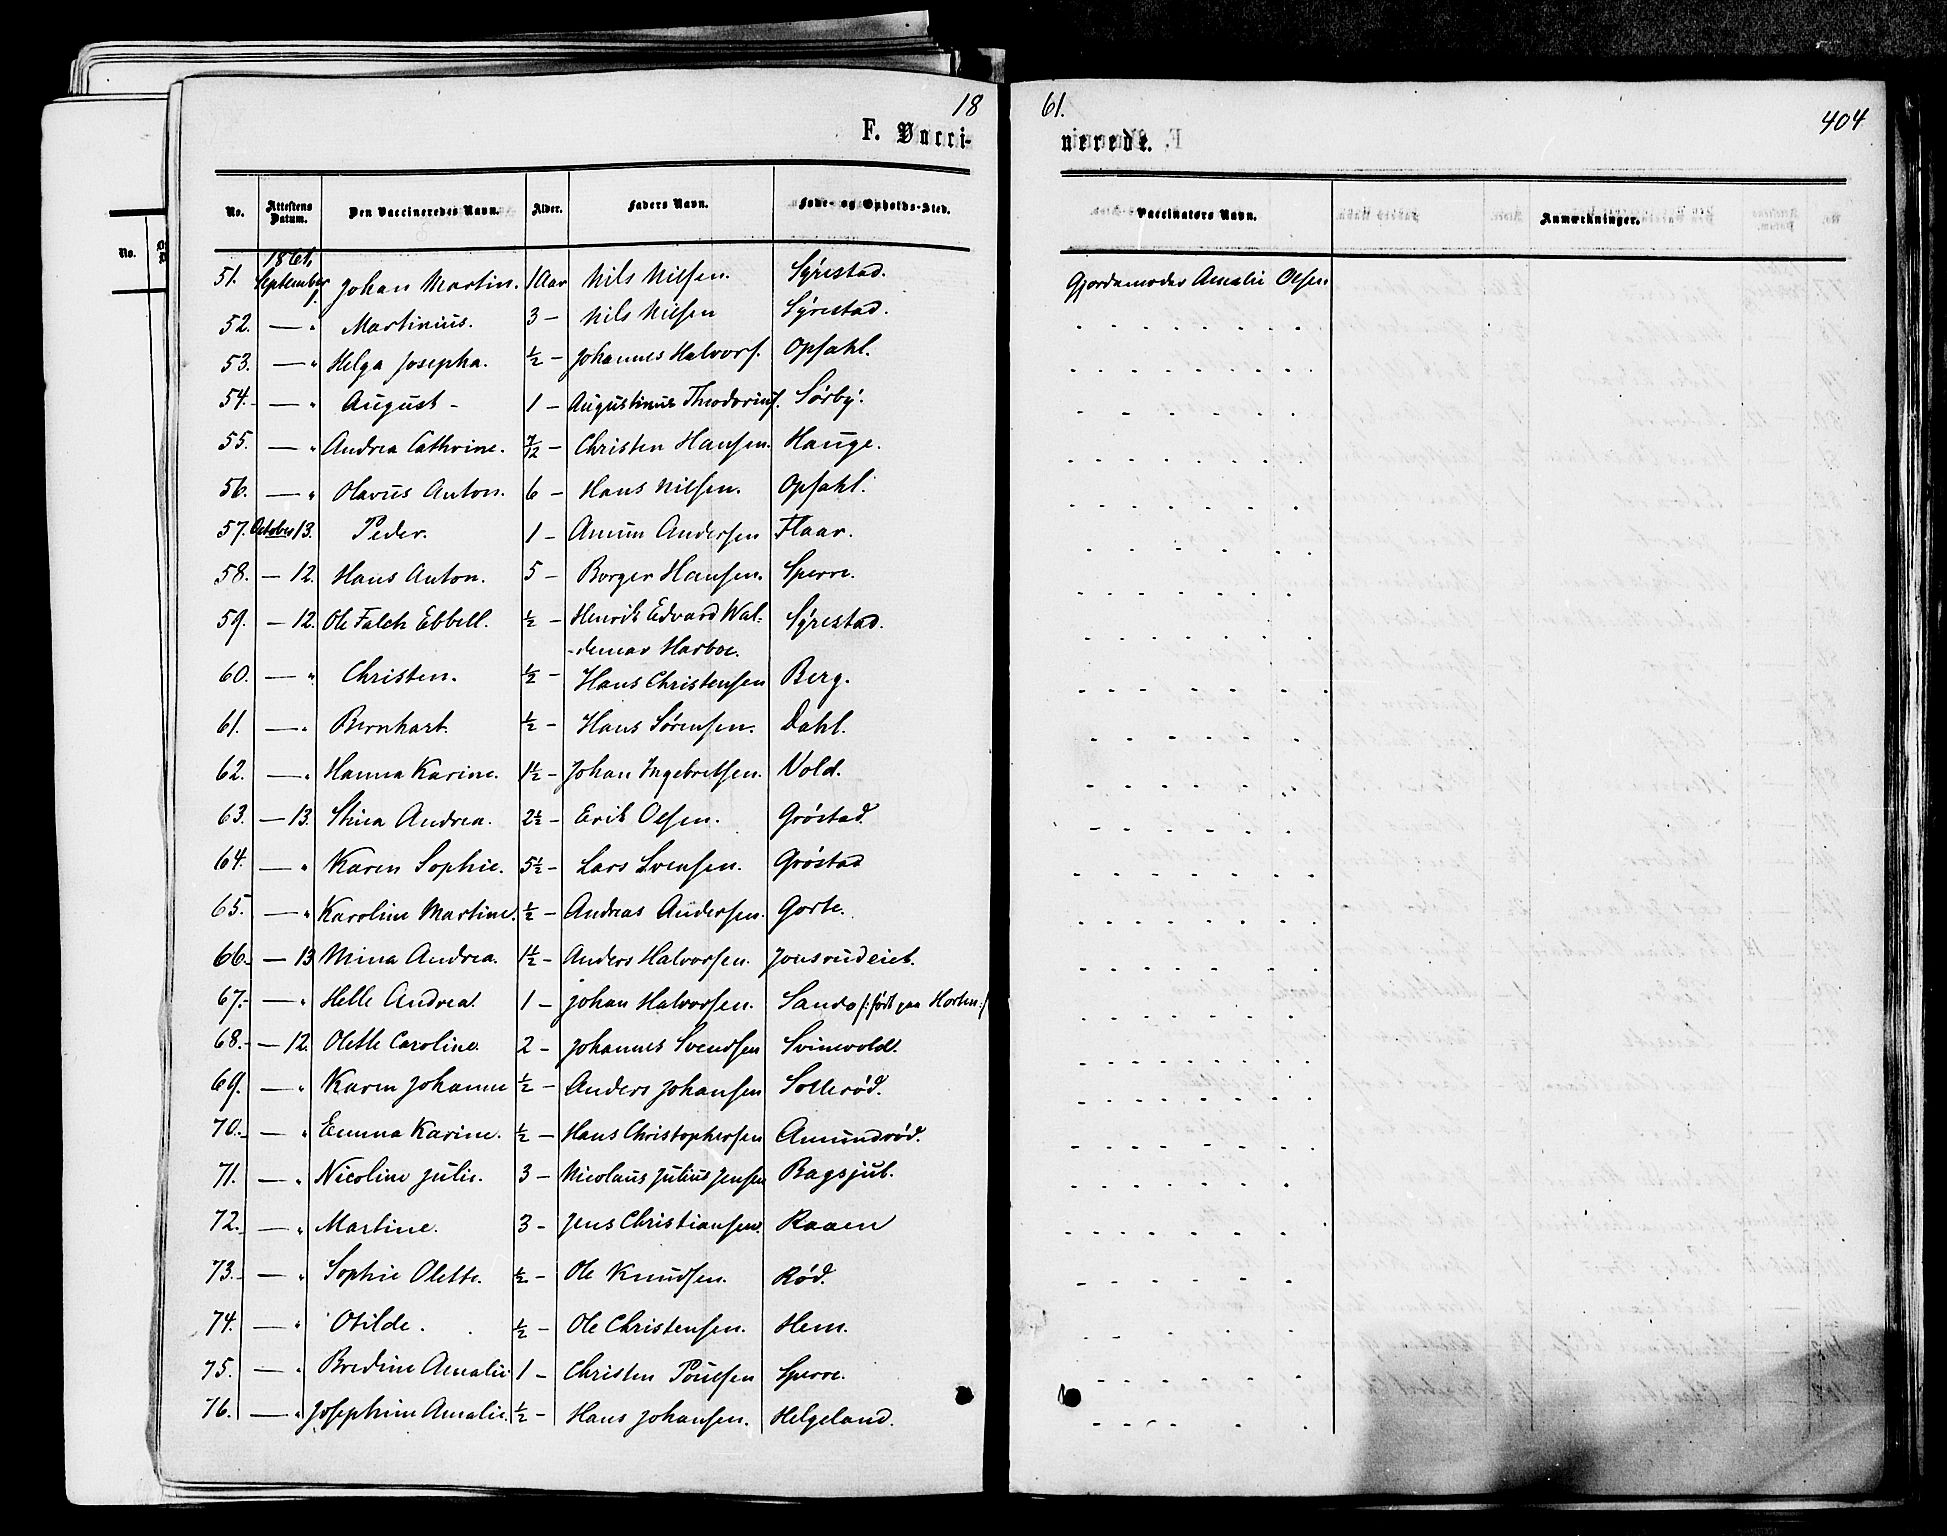 18 61. 404
F. Vacci- nerede.
No. Attestens Datum. Den Vaccineredes Navn. Alder. Faders Navn. Føde- og Opholds-Sted. Vaccinators Navn. Anmærkninger.
1861,
51. September 1. Johan Martin. 1 Aar Nils Nilsen. Syrestad. Gjordemoder Amalie Olsen
52. — " Martinius. 3 — Nils Nilsen Syrestad.
53. — " Helga Josepha. ½ — Johannes Halvors. Opsahl.
54. — " August — 1 — Augustinus Theodorius. Sørby.
55. — " Andrea Cathrine. 7/12 — Christen Hansen. Hauge.
56. — " Olavus Anton. 6 — Hans Nilsen. Opsahl.
57. October 13. Peder. 1 — Amun Andersen Haar.
58. — 12. Hans Anton. 5 — Borger Hansen. Sperre.
59. — 12. Ole Falch Ebbell. ½ — Henrik Edvard Wal- Syrestad.
-demar Harboe.
60. — " Christen. ½ — Hans Christensen Berg.
61. — " Bernhart. ½ — Hans Sørensen. Dahl.
62. — " Hanna Karine. 1½ — Johan Ingebretsen. Vold.
63. — 13. Stina Andrea. 2½ — Erik Olsen. Grøstad.
64. — " Karen Sophie. 5½ — Lars Svensen. Grøstad
65. — " Karoline Martine. ½ — Andreas Andersen. Gorte.
66. — 13 Mina Andrea. 1½ — Anders Halvorsen. Jonsrudeiet.
67. — " Helle Andrea. 1 — Johan Halvorsen. Sando /: født paa Horten :/
68. — 12. Olette Caroline. 2 — Johannes Svendsen Svinevold.
69. — " Karen Johanne ½ — Anders Johansen Sollerød.
70. — " Emma Karine. ½ — Hans Christophersen Amundrød.
71. — " Nicoline Julie. 3 — Nicolaus Julius Jensen Bagsjub.
72. — " Martine. 3 — Jens Christiansen. Raaen
73. — " Sophie Olette. ½ — Ole Knudsen. Rød.
74. — " Otilde. ½ — Ole Christensen. Hem.
75. — " Bredine Amalie 1 — Christen Poulsen Sperre.
76. — " Josephine Amalie. ½ — Hans Johansen. Helgeland.
No.